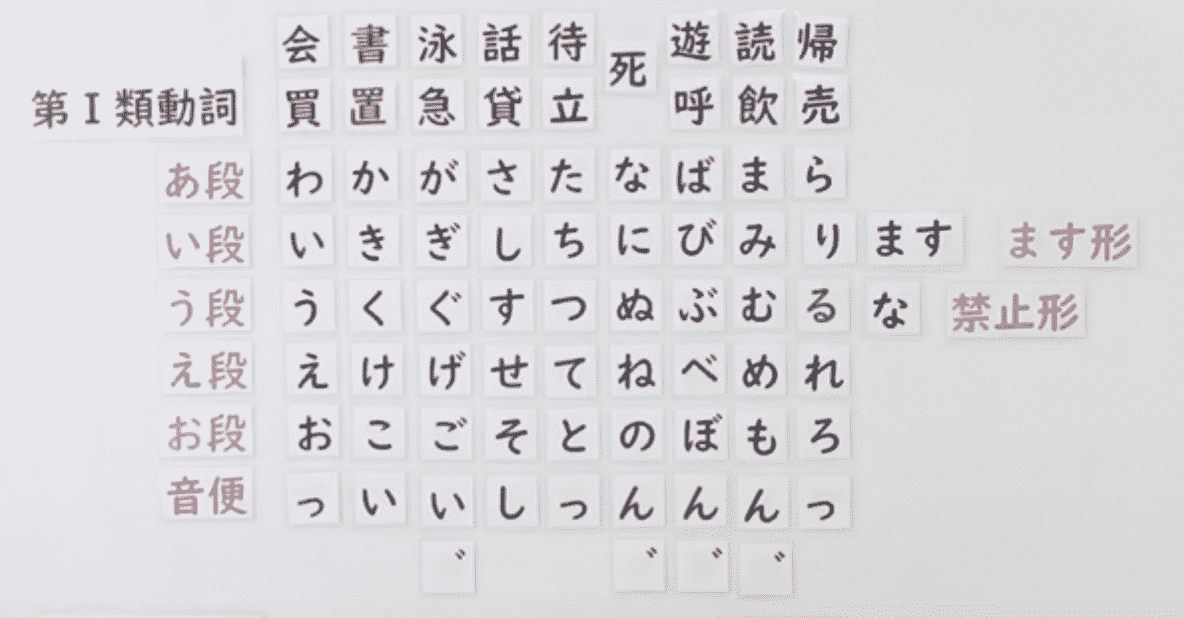 会 書 泳 話 待 死 遊 読 帰
第Ⅰ類動詞 買 置 急 貸 立 呼 飲 売
あ段 わ か が さ た な ば ま ら
い段 い き ぎ し ち に び み り ます ます形
う段 う く ぐ す つ ぬ ぶ む る な 禁止形
え段 え け げ せ て ね べ め れ
お段 お こ ご そ と の ぼ も ろ
音便 っ い い し っ ん ん ん っ
゛ ゛ ゛ ゛